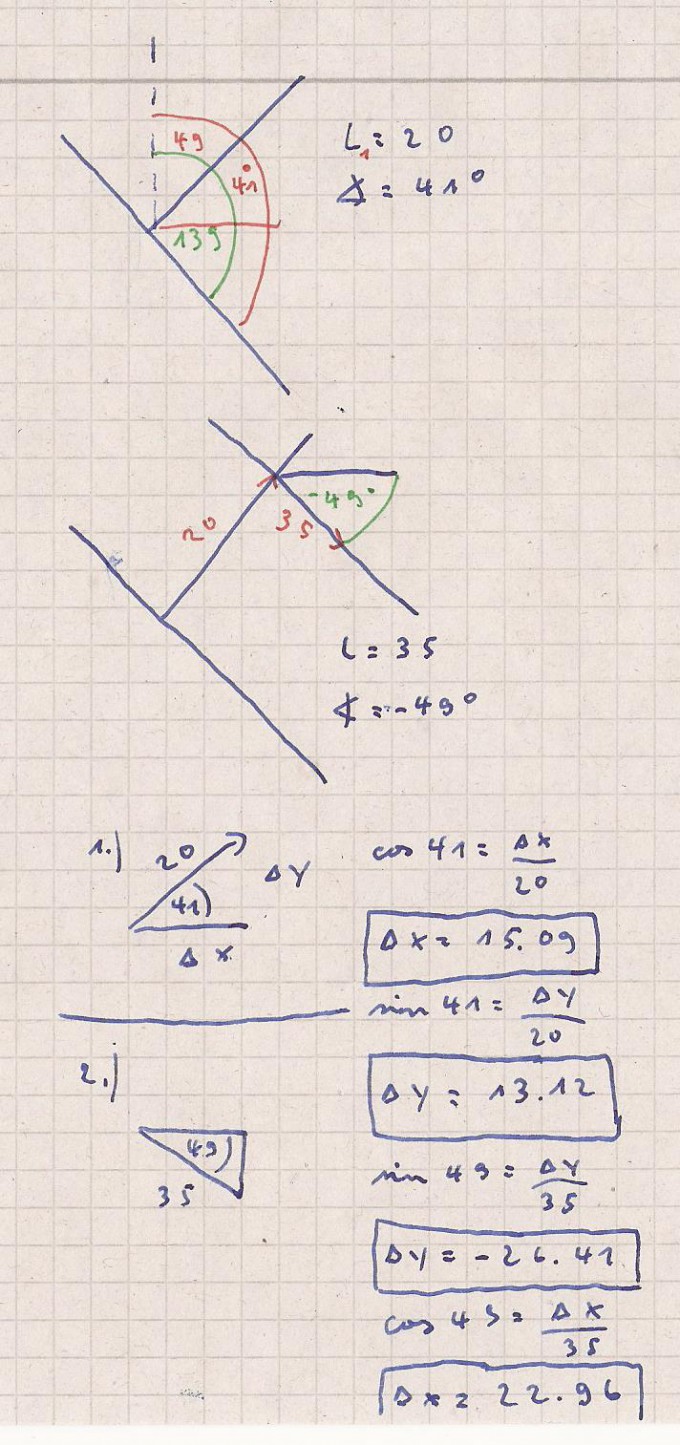 49
41°
139
L₁ = 20
∡ = 41°
20
35
-49°
L = 35
∡ = -49°
1.) 20
41)
ΔY
ΔX
cos 41 = ΔX/20
ΔX = 15.09
sin 41 = ΔY/20
ΔY = 13.12
2.)
49)
35
sin 49 = ΔY/35
ΔY = -26.41
cos 49 = ΔX/35
Δx = 22.96